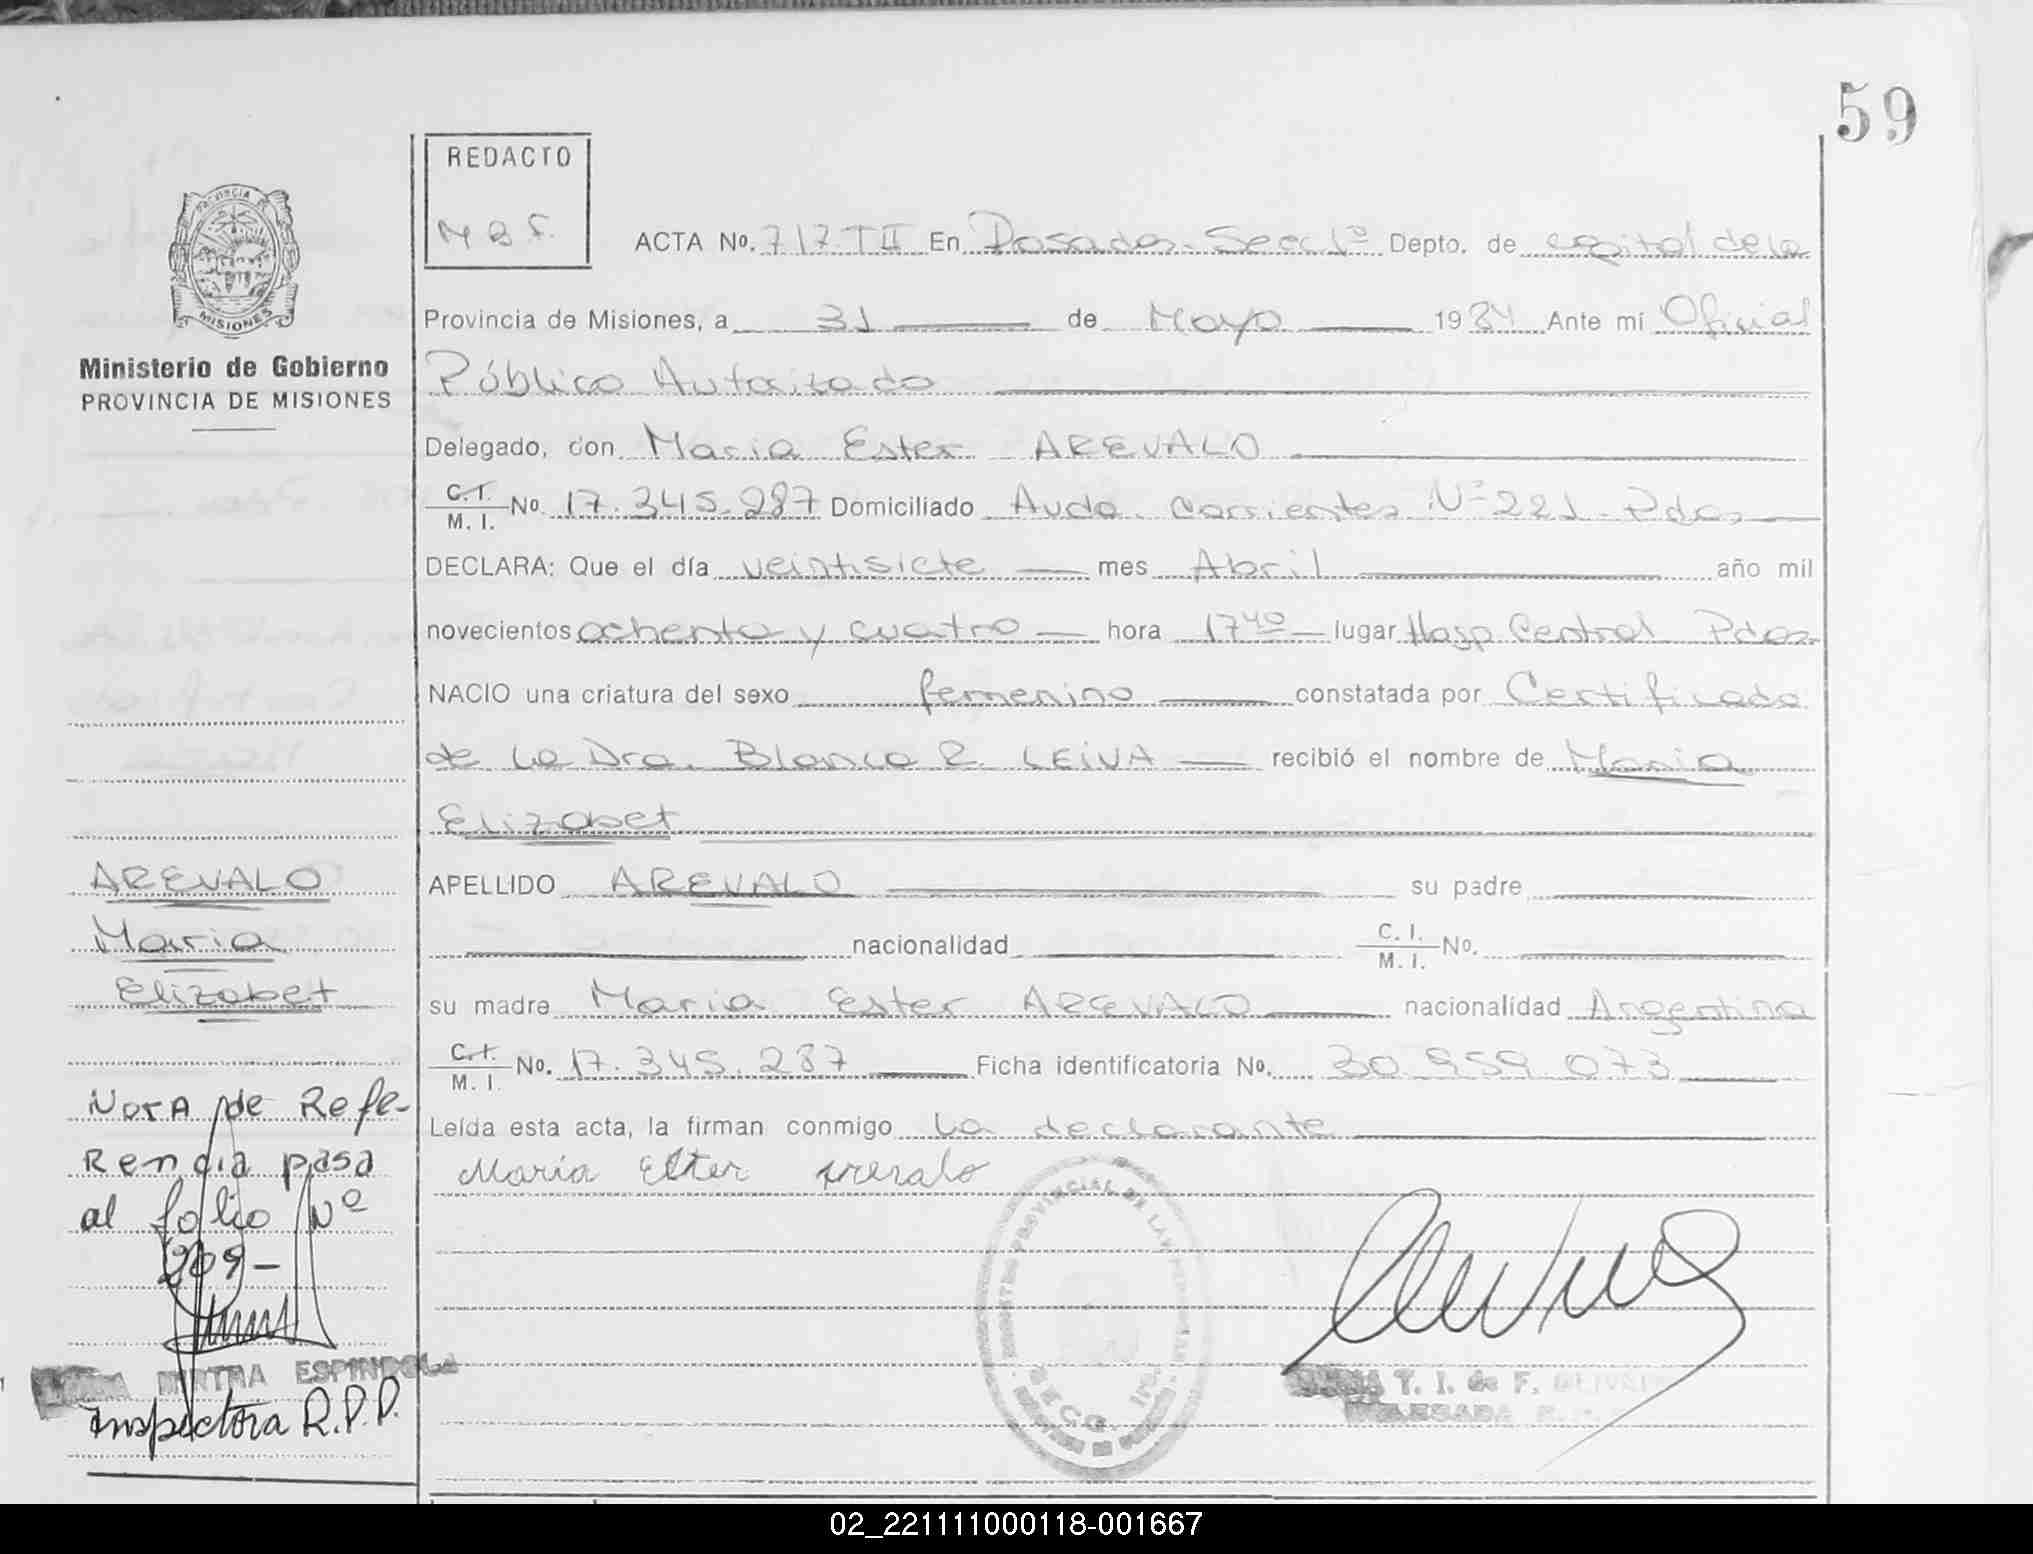 59
REDACTO
M B F.
PROVINCIA DE
MISIONES
Ministerio de Gobierno
PROVINCIA DE MISIONES
ACTA No. 717 TII En Posadas Secc 1º Depto. de capital de la
Provincia de Misiones, a 31 de Mayo 1984 Ante mí Oficial
Público Autorizado
Delegado, don Maria Ester AREVALO
C. I. M. I. No. 17.345.287 Domiciliado Avda. Corrientes Nº 221 Pdas
DECLARA: Que el día veintisiete mes Abril año mil
novecientos ochenta y cuatro hora 17 40 lugar Hosp Central Pdas
NACIO una criatura del sexo femenino constatada por Certificado
de la Dra. Blanca R. LEIVA recibió el nombre de Maria
Elizabet
APELLIDO AREVALO su padre
nacionalidad C. I. M. I. No.
su madre Maria Ester AREVALO nacionalidad Argentina
C. I. M. I. No. 17.345.287 Ficha identificatoria No. 30.959.073
Leída esta acta, la firman conmigo La declarante
Maria Ester Arevalo
AREVALO
Maria
Elizabet
Nota de Refe-
Rencia pasa
al folio Nº
209-
MIRTHA ESPINDOLA
Inspectora R.P.P.
REGISTRO PROVINCIAL DE LAS PERSONAS
SECC. 1ra.
T. I. de F.
02_221111000118-001667